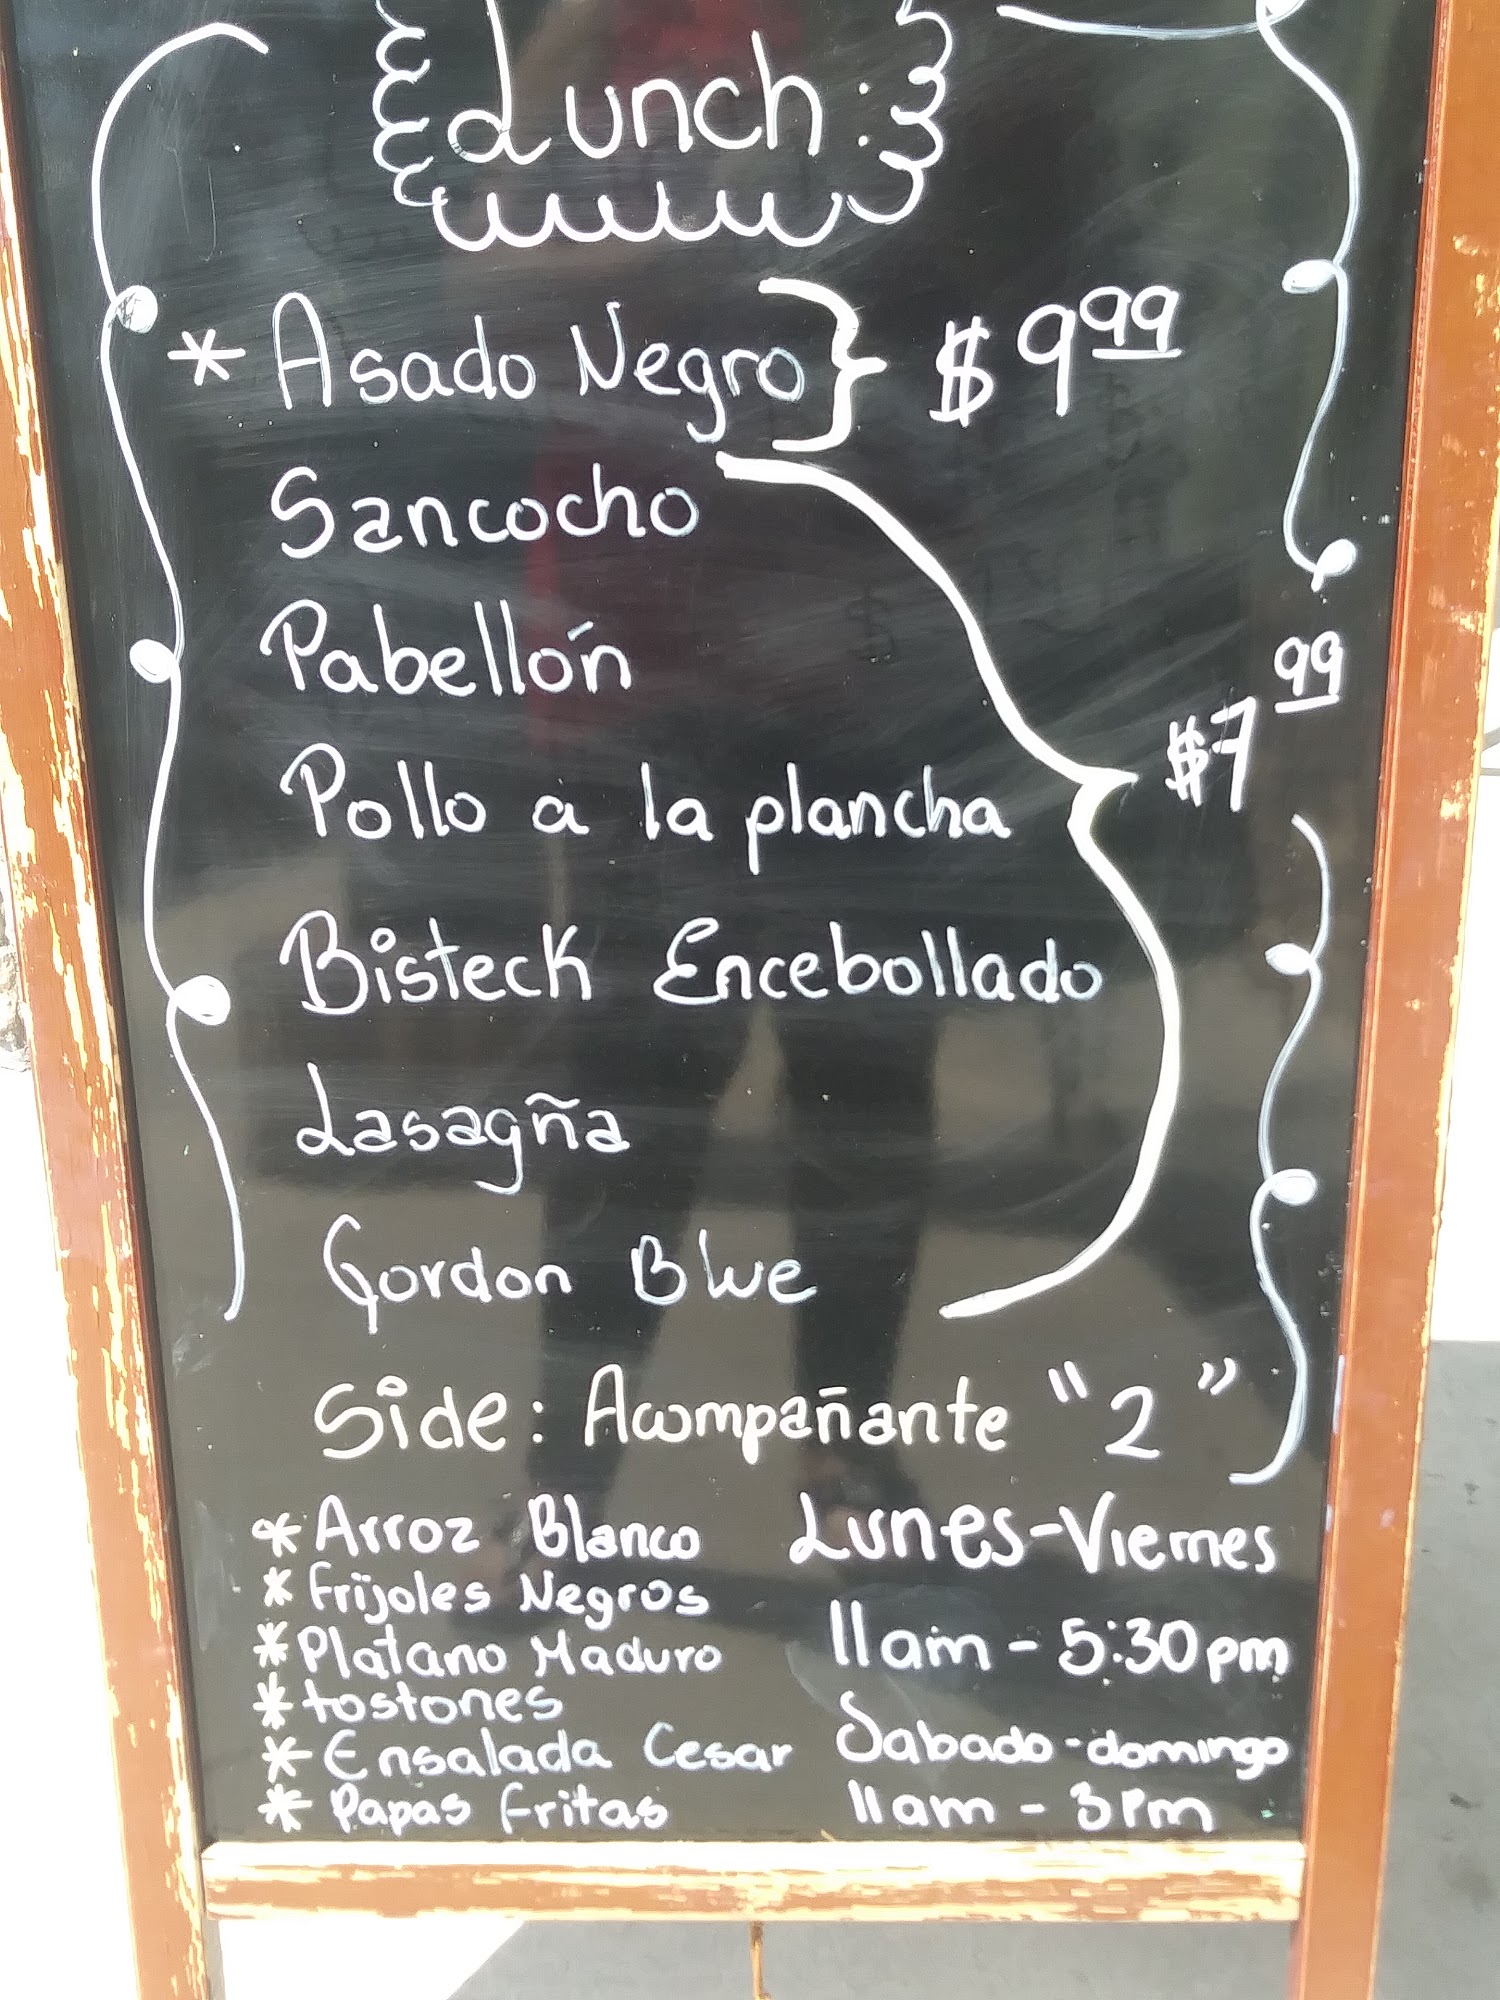 Lunch:
* Asado Negro } $9 99
Sancocho
Pabellón
Pollo a la plancha
$7 99
Bisteck Encebollado
Lasagña
Gordon Blue
Side: Acompañante "2"
* Arroz Blanco
* Frijoles Negros
* Platano Maduro
* tostones
* Ensalada Cesar
* Papas Fritas
Lunes-Viernes
11am - 5:30pm
Sabado-domingo
11am - 3Pm